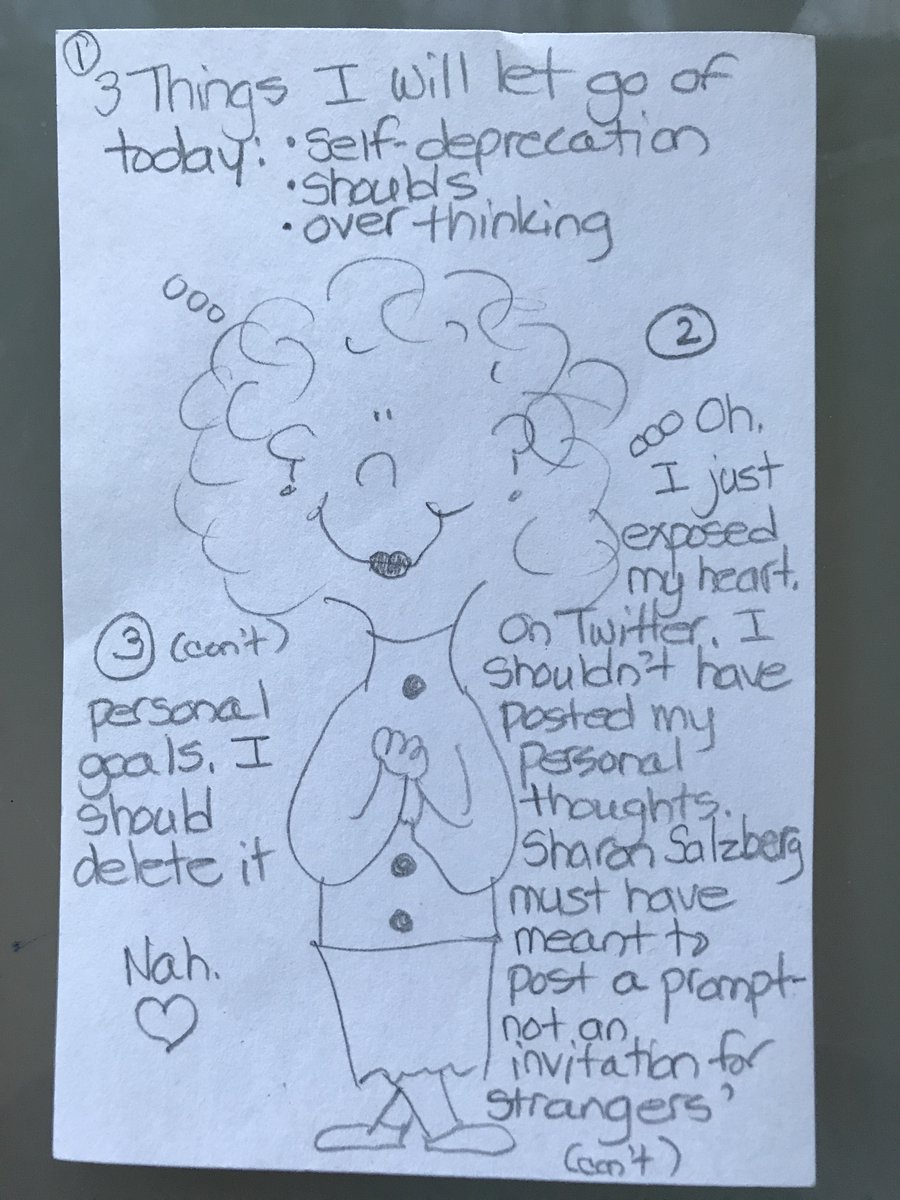 ①
3 Things I will let go of
today: • self-deprecation
• shoulds
• over thinking
②
ooo Oh.
I just
exposed
my heart.
On Twitter. I
shouldn't have
posted my
personal
thoughts.
Sharon Salzberg
must have
meant to
post a prompt-
not an
invitation for
strangers'
(con't)
③ (con't)
personal
goals. I
should
delete it
Nah.
♡